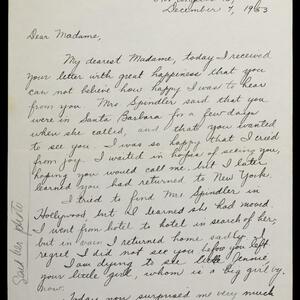 December 7, 1953
Dear Madame,
My dearest Madame, today I received
your letter with great happiness that you
can not believe how happy I was to hear
from you. Mrs Spindler said that you
were in Santa Barbara for a few days
when she called, and that you wanted
to see you. I was so happy that I cried
from joy. I waited in hopes of seeing you,
hoping you would call me, but I later
learned you had returned to New York.
I tried to find Mrs. Spindler in
Hollywood, but I learned she had moved.
I went from hotel to hotel in search of her,
but in vain I returned home sadly.
regret I did not see you before you left
I am dying to see little Jennie,
your little girl, whom is a big girl by
now.
Today you surprised me very much